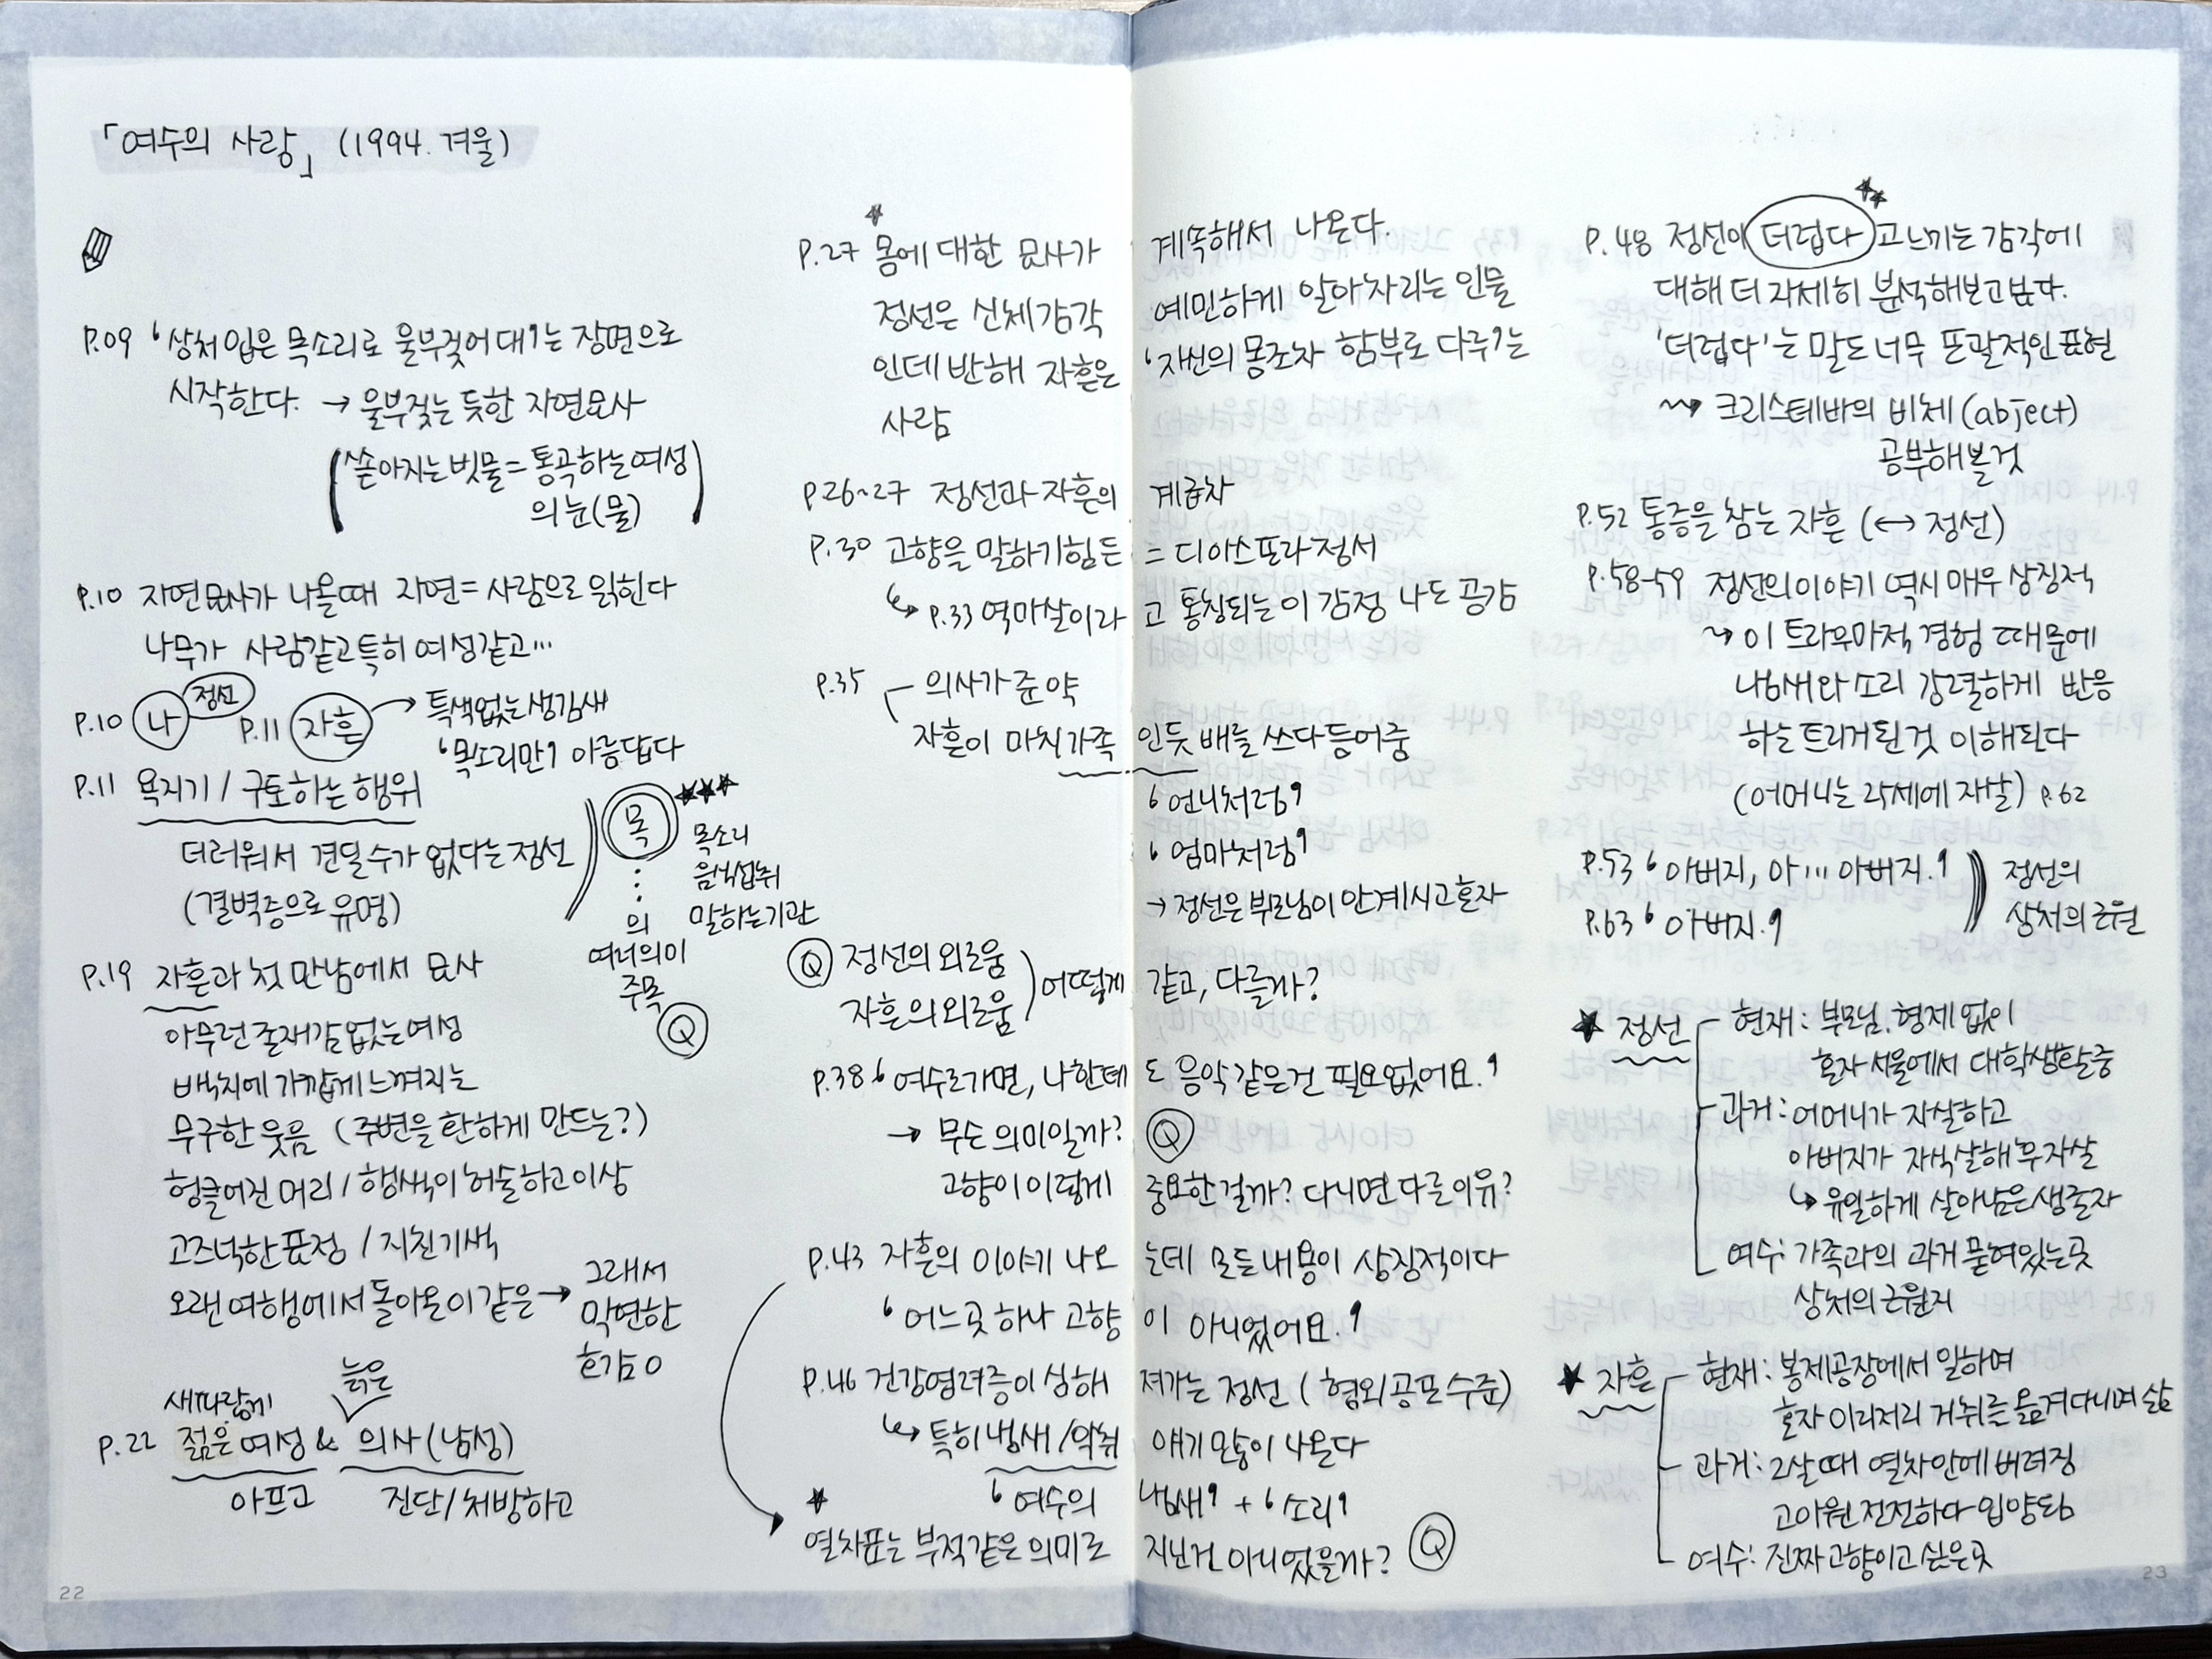 「여수의 사랑」 (1994. 겨울)
P.09 '상처 입은 목소리로 울부짖어 대'는 장면으로
시작한다. → 울부짖는 듯한 자연묘사
(쏟아지는 빗물 = 통곡하는 여성
의 눈(물))
P.10 자연묘사가 나올 때 자연 = 사람으로 읽힌다
나무가 사람같고 특히 여성같고…
P.10 나 정선 P.11 자흔 → 특색없는 생김새
'목소리만' 아름답다
P.11 욕지기 / 구토하는 행위
더러워서 견딜 수가 없다는 정선
(결벽증으로 유명)
목 ★★★
목소리
음식섭취
말하는 기관
의
여러 의미
주목
Q
P.19 자흔과 첫 만남에서 묘사
아무런 존재감 없는 여성
백치에 가깝게 느껴지는
무구한 웃음 (주변을 환하게 만드는?)
헝클어진 머리 / 행색이 허술하고 이상
고즈넉한 표정 / 지친 기색
오랜 여행에서 돌아온 이 같은 → 그래서
막연한
호감 O
P.22 새파랗게 젊은 여성 & 늙은 의사(남성)
아프고 진단/처방하고
22
★
P.27 몸에 대한 묘사가 계속해서 나온다.
정선은 신체감각 예민하게 알아차리는 인물
인데 반해 자흔은 '자신의 몸조차 함부로 다루'는
사람
P.26~27 정선과 자흔의 계급차
P.30 고향을 말하기 힘든 = 디아스포라 정서
↳ P.33 역마살이라고 통칭되는 이 감정 나도 공감
P.35 의사가 준 약
자흔이 마치 가족인 듯 배를 쓰다듬어 줌
'언니처럼'
'엄마처럼'
→ 정선은 부모님이 안 계시고 혼자
Q 정선의 외로움
자흔의 외로움 ) 어떻게 같고, 다를까?
P.38 '여수로 가면, 나한테도 음악 같은 건 필요없어요.'
→ 무슨 의미일까? Q
고향이 이렇게 중요한 걸까? 다니면 다를 이유?
P.43 자흔의 이야기 나오는데 모든 내용이 상징적이다
'어느 곳 하나 고향이 아니었어요.'
P.46 건강염려증이 심해져가는 정선 (혐오 공포 수준)
↳ 특히 냄새/악취 얘기 많이 나온다
'여수의 냄새' + '소리'
★ 열차표는 부적같은 의미로 지닌 건 아니었을까? Q
★★
P.48 정선이 더럽다고 느끼는 감각에
대해 더 자세히 분석해보고 싶다.
'더럽다'는 말도 너무 포괄적인 표현
크리스테바의 비체(abject)
공부해 볼 것
P.52 통증을 참는 자흔 (↔ 정선)
P.58-59 정선의 이야기 역시 매우 상징적
→ 이 트라우마적 경험 때문에
냄새와 소리 강렬하게 반응
하는 트리거 된 것 이해된다
P.62
P.53 '아버지, 아… 아버지.'
P.63 '아버지.'
정선의
상처의 근원
★ 정선
현재: 부모님, 형제 없이
혼자 서울에서 대학생활 중
과거: 어머니가 자살하고
아버지가 자식 살해 후 자살
↳ 유일하게 살아남은 생존자
여수: 가족과의 과거 묻어있는 곳
상처의 근원지
★ 자흔
현재: 봉제공장에서 일하며
혼자 이리저리 거취를 옮겨다니며 삶
과거: 2살 때 열차 안에 버려짐
고아원 전전하다 입양됨
여수: 진짜 고향이고 싶은 곳
23